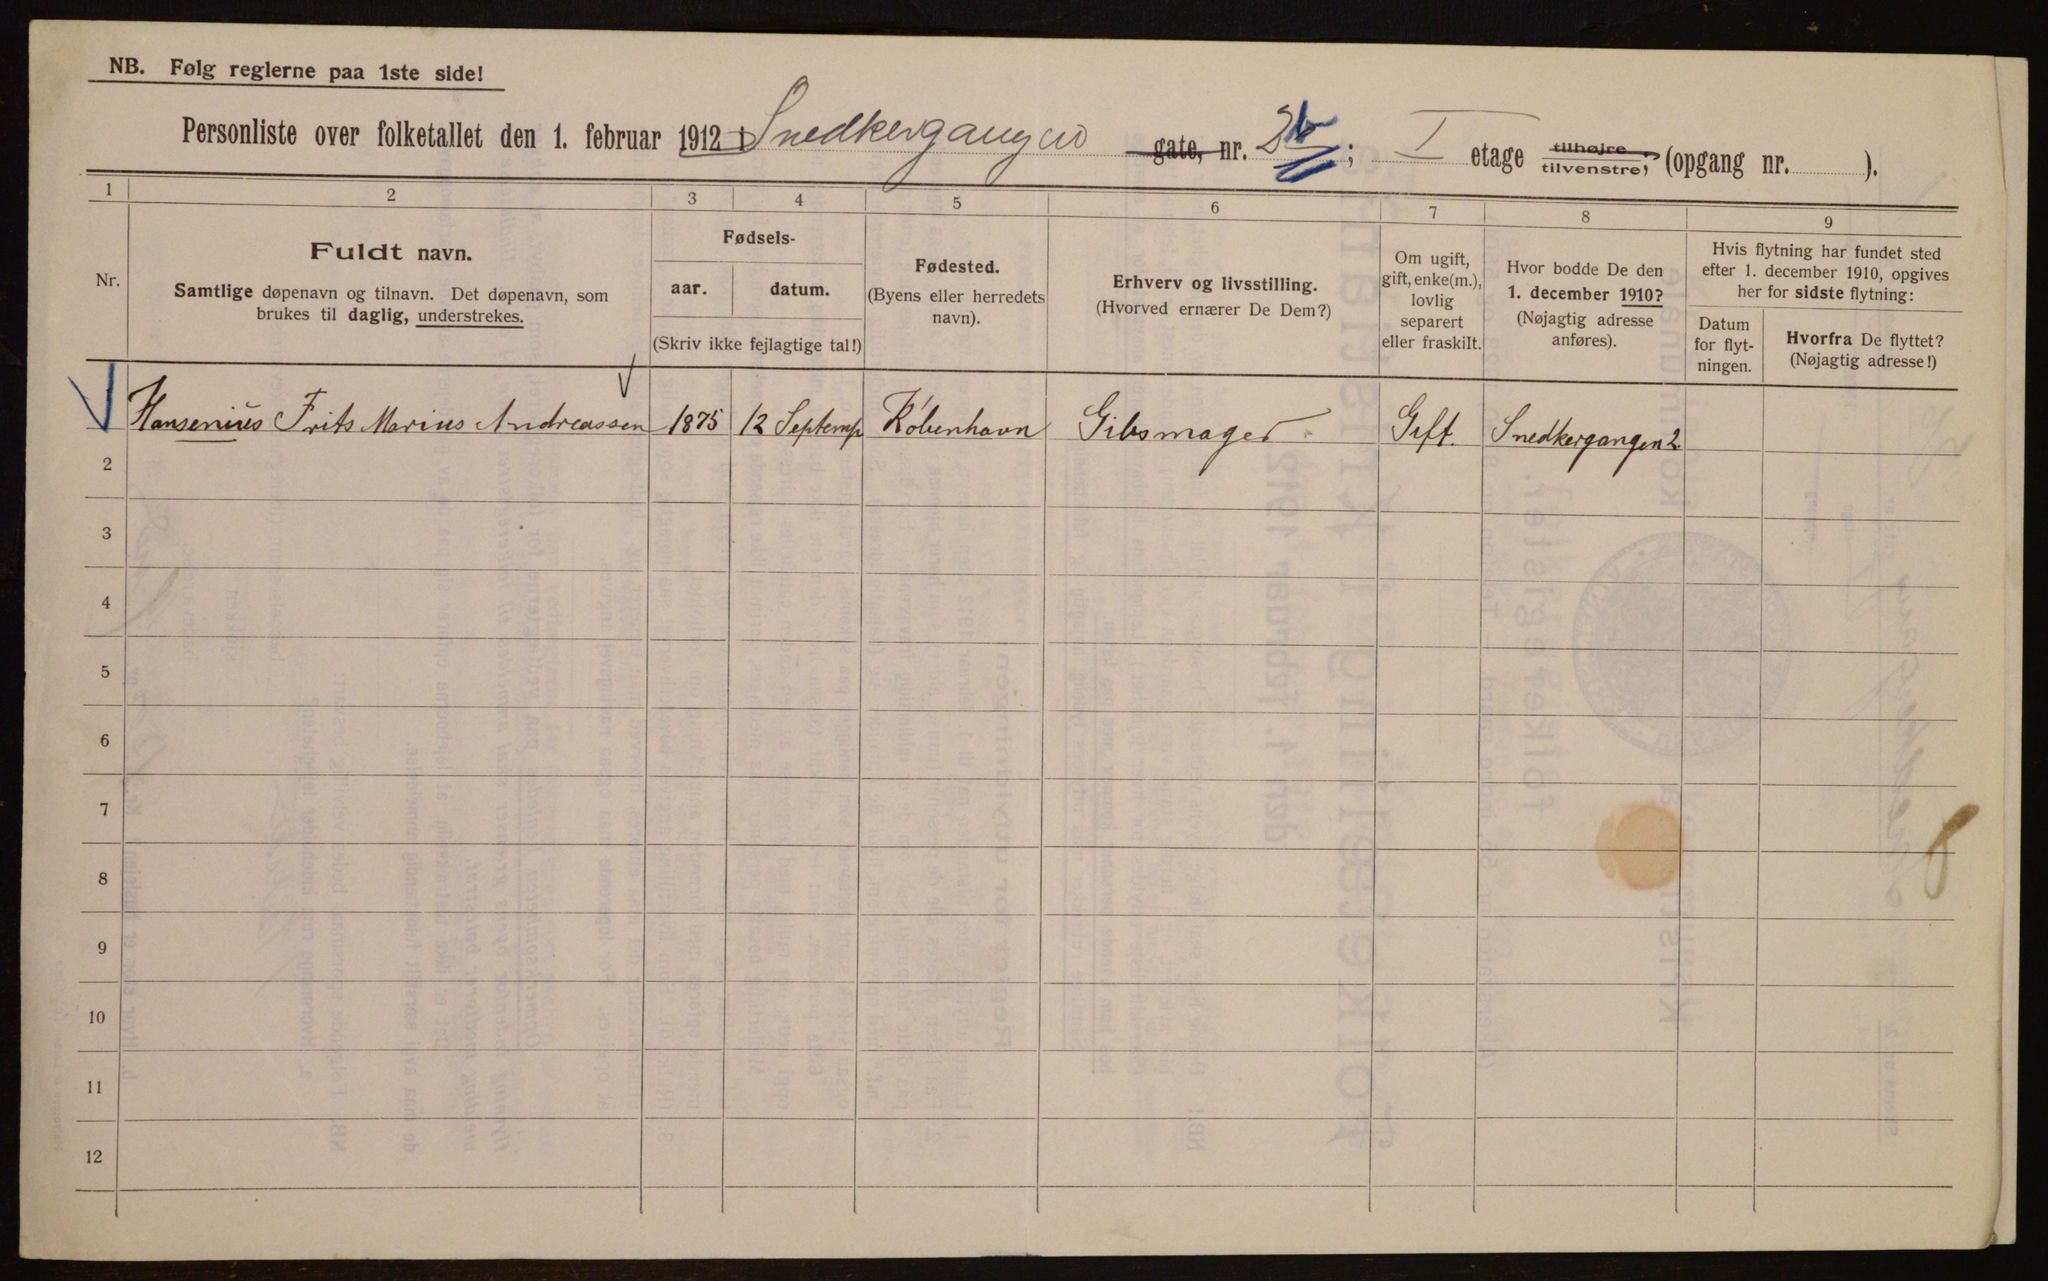 NB. Følg reglerne paa 1ste side!
Personliste over folketallet den 1. februar 1912 i Snedkergangen gate, nr. 2b; I etage tilhøjre tilvenstre, (opgang nr. ).
1 2 3 4 5 6 7 8 9
Nr.
Fuldt navn.
Samtlige døpenavn og tilnavn. Det døpenavn, som
brukes til daglig, understrekes.
Fødsels-
aar. datum.
(Skriv ikke fejlagtige tal!)
Fødested.
(Byens eller herredets
navn).
Erhverv og livsstilling.
(Hvorved ernærer De Dem?)
Om ugift,
gift, enke(m.),
lovlig
separert
eller fraskilt.
Hvor bodde De den
1. december 1910?
(Nøjagtig adresse
anføres).
Hvis flytning har fundet sted
efter 1. december 1910, opgives
her for sidste flytning:
Datum
for flyt-
ningen.
Hvorfra De flyttet?
(Nøjagtig adresse!)
Hansenius Frits Marius Andreassen 1875 12 Septemp København Gibsmager Gift. Snedkergangen 2.
2
3
4
5
6
7
8
9
10
11
12